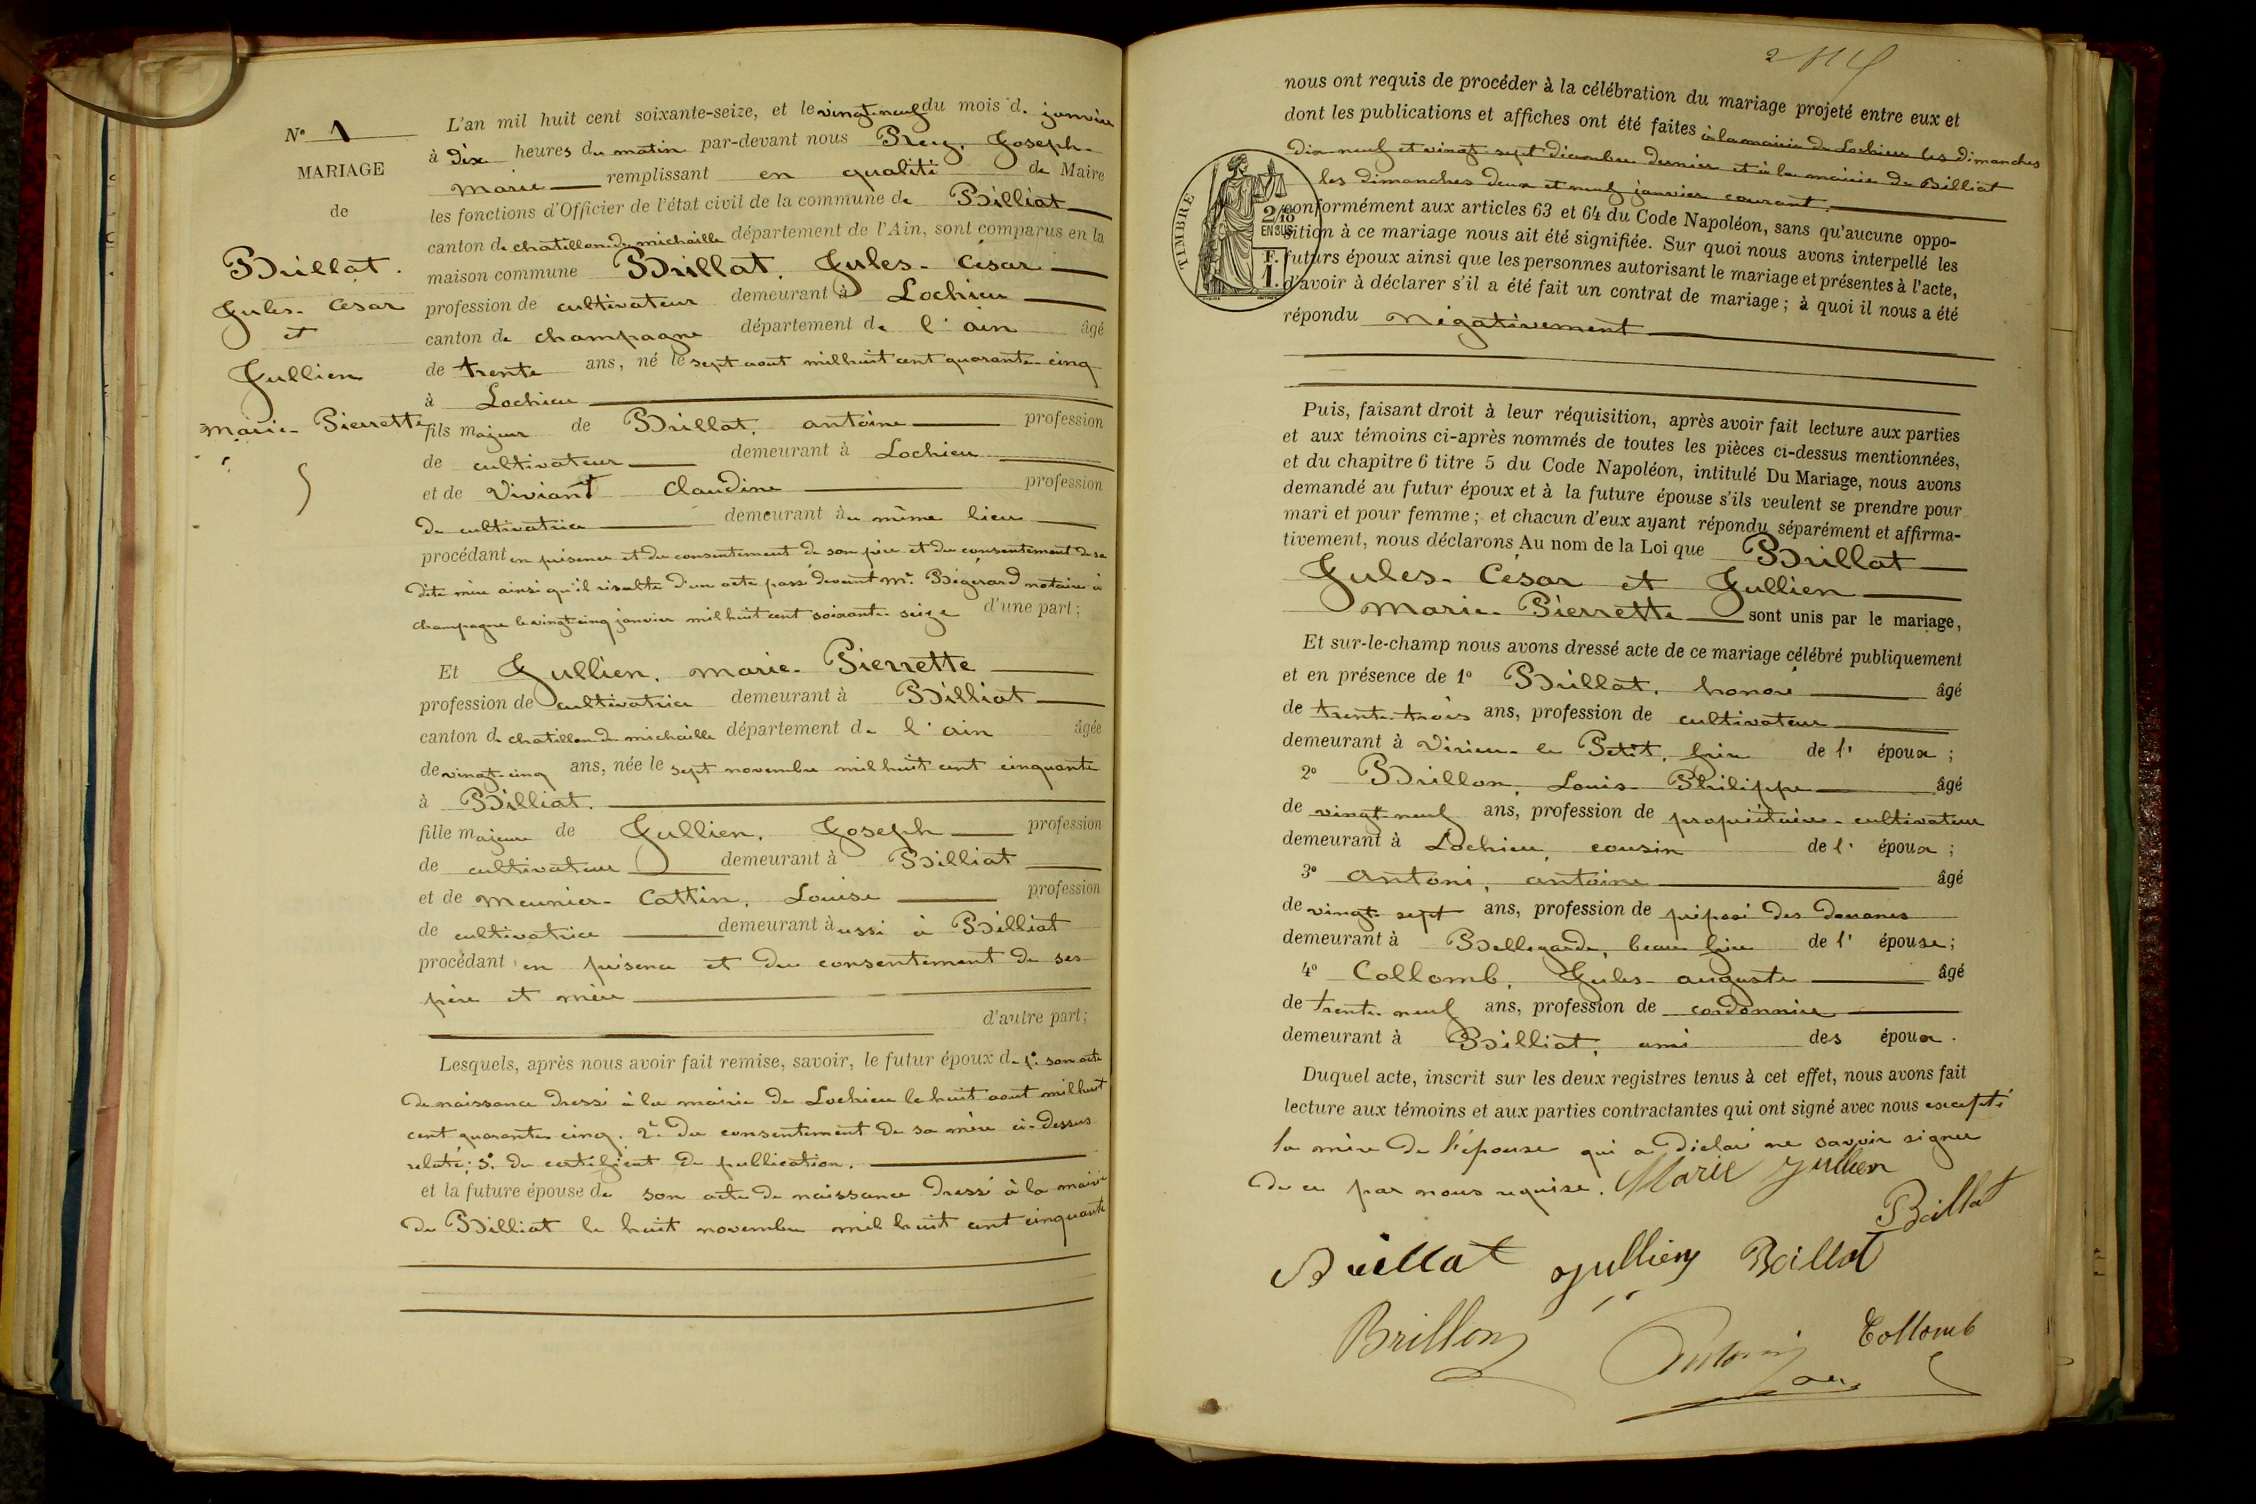 N° 1
MARIAGE
de
Brillat.
Jules-César
et
Jullien
Marie-Pierrette
L'an mil huit cent soixante-seize, et le vingt-neuf du mois de janvier
à dix heures du matin par-devant nous Joseph-
Marie remplissant en qualité de Maire
les fonctions d'Officier de l'état civil de la commune de Billiat
canton de chatillon de michaille département de l'Ain, sont comparus en la
maison commune Brillat, Jules-César
profession de cultivateur demeurant à Lochieu
canton de champagne département de l'ain âgé
de trente ans, né le sept aout mil huit cent quarante-cinq
à Lochieu
fils majeur de Brillat, antoine profession
de cultivateur demeurant à Lochieu
et de Viviant Claudine profession
de cultivatrice demeurant au même lieu
procédant en présence et du consentement de son père et du consentement de sa
dite mère ainsi qu'il résulte d'un acte passé devant Mr. Bégérard notaire à
champagne le vingt cinq janvier mil huit cent soixante-seize d'une part;
Et Jullien, Marie-Pierrette
profession de cultivatrice demeurant à Billiat
canton de chatillon de michaille département de l'ain âgée
de vingt-cinq ans, née le sept novembre mil huit cent cinquante
à Billiat.
fille majeure de Jullien, Joseph profession
de cultivateur demeurant à Billiat
et de Meunier-Cattin, Louise profession
de cultivatrice demeurant aussi à Billiat
procédant en présence et du consentement de ses
père et mère
d'autre part;
Lesquels, après nous avoir fait remise, savoir, le futur époux de 1°. son acte
de naissance dressé à la mairie de Lochieu le huit aout mil huit
cent quarante-cinq. 2°. du consentement de sa mère ci-dessus
relaté; 3°. du certificat de publication.
et la future épouse de son acte de naissance dressé à la mairie
de Billiat le huit novembre mil huit cent cinquante
nous ont requis de procéder à la célébration du mariage projeté entre eux et
dont les publications et affiches ont été faites à la mairie de Lochieu les dimanches
dix neuf et vingt-sept décembre dernier et à la mairie de Billiat
les dimanches deux et neuf janvier courant.
TIMBRE
2/10
EN SUS
F.
1.
conformément aux articles 63 et 64 du Code Napoléon, sans qu'aucune oppo-
sition à ce mariage nous ait été signifiée. Sur quoi nous avons interpellé les
futurs époux ainsi que les personnes autorisant le mariage et présentes à l'acte,
d'avoir à déclarer s'il a été fait un contrat de mariage; à quoi il nous a été
répondu négativement
Puis, faisant droit à leur réquisition, après avoir fait lecture aux parties
et aux témoins ci-après nommés de toutes les pièces ci-dessus mentionnées,
et du chapitre 6 titre 5 du Code Napoléon, intitulé Du Mariage, nous avons
demandé au futur époux et à la future épouse s'ils veulent se prendre pour
mari et pour femme; et chacun d'eux ayant répondu séparément et affirma-
tivement, nous déclarons Au nom de la Loi que Brillat
Jules-César et Jullien
Marie-Pierrette sont unis par le mariage,
Et sur-le-champ nous avons dressé acte de ce mariage célébré publiquement
et en présence de 1° Brillat, honoré âgé
de trente-trois ans, profession de cultivateur
demeurant à Virieu-le Petit, frère de l' époux;
2° Brillon, Louis-Philippe âgé
de vingt-neuf ans, profession de propriétaire-cultivateur
demeurant à Lochieu, cousin de l' époux;
3° Antoni, antoine âgé
de vingt-sept ans, profession de préposé des douanes
demeurant à Bellegarde, beau frère de l' épouse;
4° Collomb, Jules-auguste âgé
de trente-neuf ans, profession de cordonnier
demeurant à Billiat, ami des époux.
Duquel acte, inscrit sur les deux registres tenus à cet effet, nous avons fait
lecture aux témoins et aux parties contractantes qui ont signé avec nous excepté
la mère de l'épouse qui a déclaré ne savoir signer
de ce par nous requise. Marie Jullien
Brillat
Brillat Jullien Brillat
Brillon Antoni Collomb